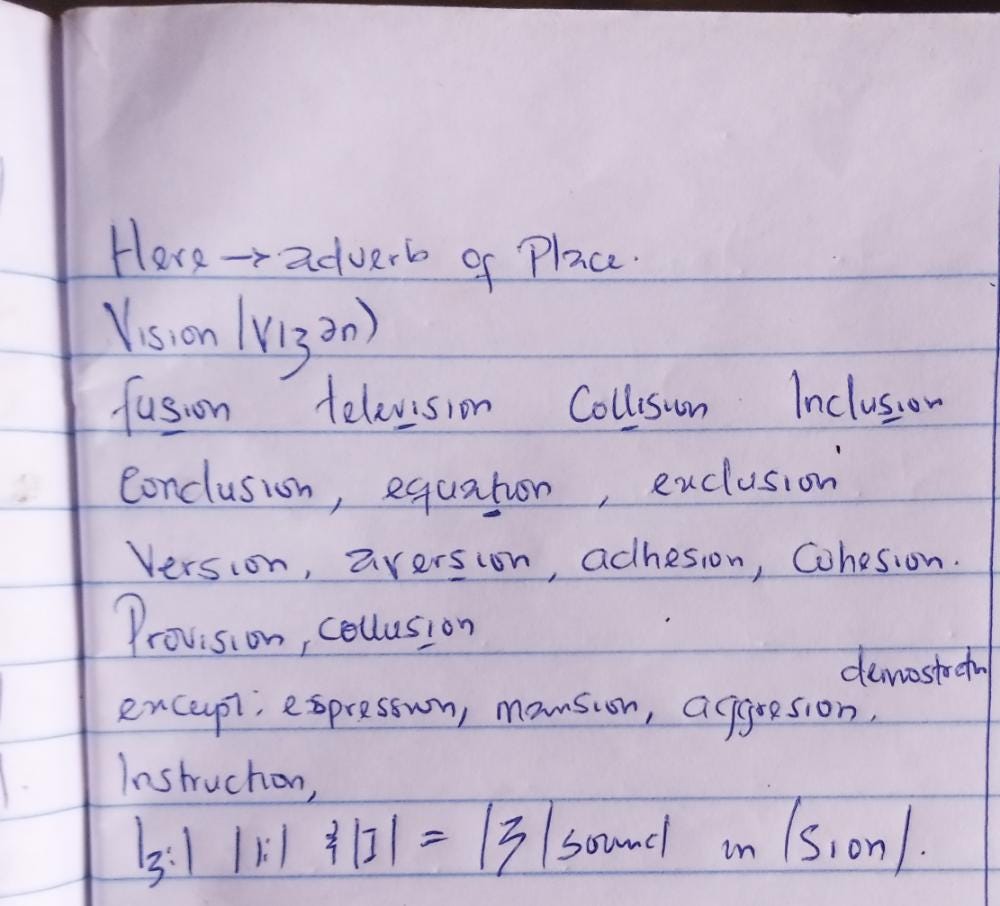 Here → adverb of Place.
Vision /vɪʒən)
fusion television Collision Inclusion
Conclusion, equation, exclusion
Version, aversion, adhesion, Cohesion.
Provision, collusion
demostratn
except: expression, mansion, aggresion,
Instruction,
/ɜ:/ /i:/ & /ɪ/ = /ʒ/ sound in /sion/.